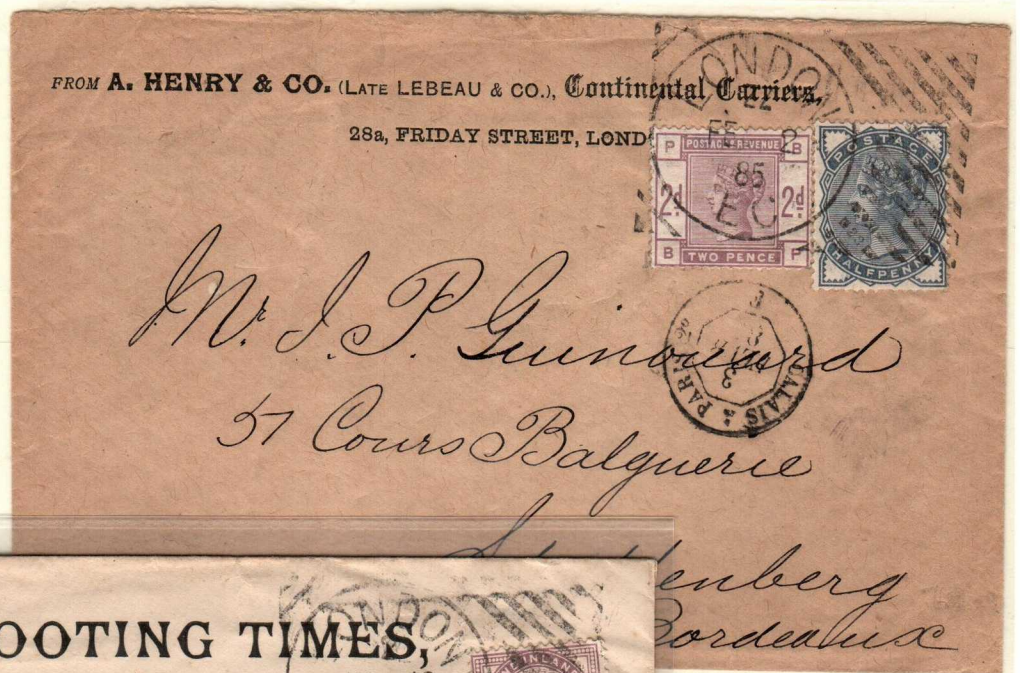 FROM A. HENRY & CO. (LATE LEBEAU & CO.), Continental Carriers,
28a, FRIDAY STREET, LOND
LONDON
EZ
FE 2
85
EC
P POSTAGE & REVENUE B
2d 2d
B TWO PENCE P
POSTAGE
HALFPENNY
Mr. J. P. Guinouard
CALAIS À PARIS
3
57 Cours Balguerie
enberg
Bordeaux
LONDON
OOTING TIMES,
INLAND